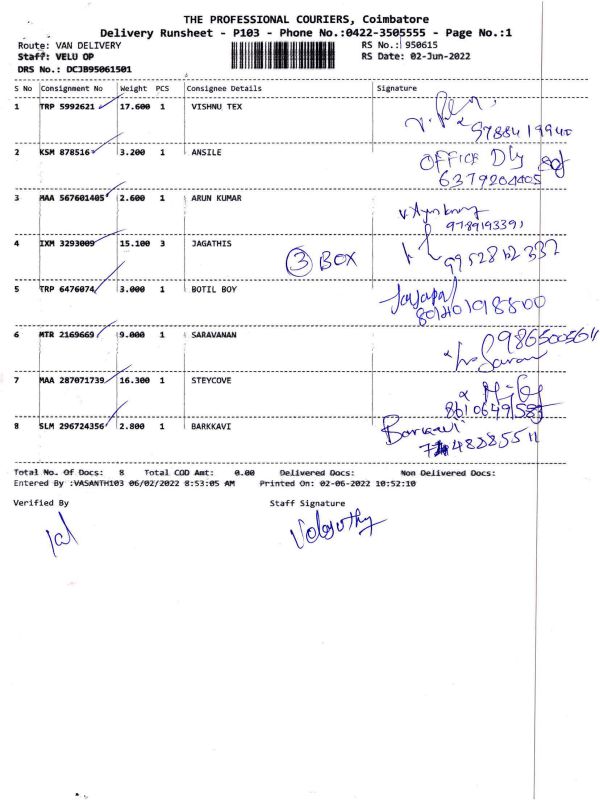 THE PROFESSIONAL COURIERS, Coimbatore
Delivery Runsheet - P103 - Phone No.:0422-3505555 - Page No.:1
Route: VAN DELIVERY RS No.: 950615
Staff: VELU OP RS Date: 02-Jun-2022
DRS No.: DCJB95061501
S No Consignment No Weight PCS Consignee Details Signature
1 TRP 5992621 17.600 1 VISHNU TEX
9788419940
2 KSM 878516 3.200 1 ANSILE OFFICE Dly
6379204405
3 MAA 567601405 2.600 1 ARUN KUMAR
9789193391
4 IXM 3293009 15.100 3 JAGATHIS 3 BOX
5 TRP 6476074 3.000 1 BOTIL BOY
6 MTR 2169669 9.000 1 SARAVANAN
7 MAA 287071739 16.300 1 STEYCOVE
8 SLM 296724356 2.800 1 BARKKAVI Barkkavi
Total No. Of Docs: 8 Total COD Amt: 0.00 Delivered Docs: Non Delivered Docs:
Entered By :VASANTH103 06/02/2022 8:53:05 AM Printed On: 02-06-2022 10:52:10
Verified By Staff Signature